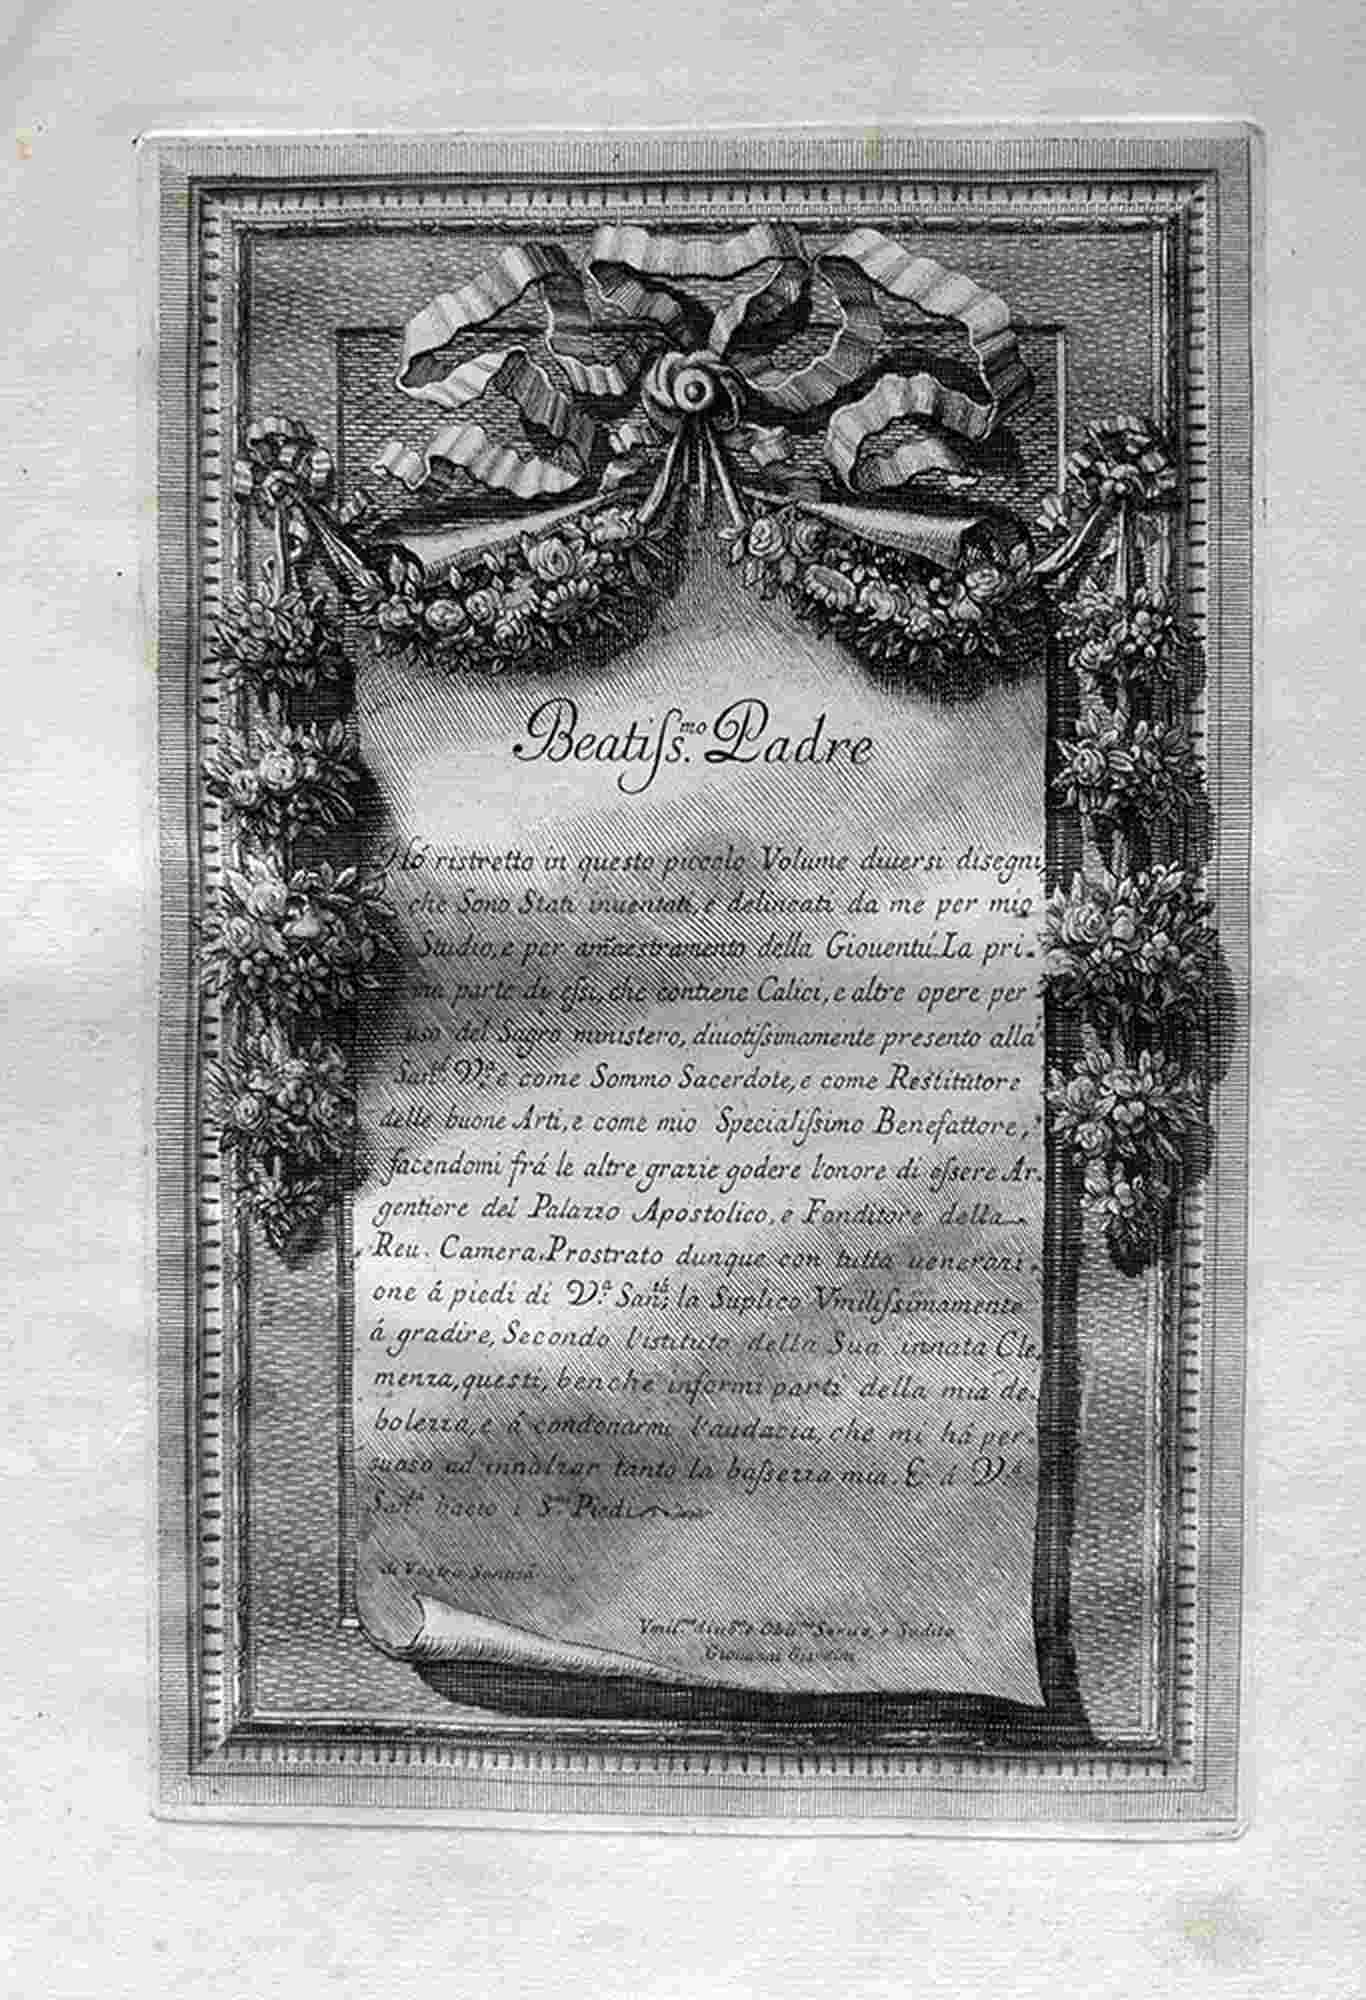 Beatiſs.mo Padre
Hó ristretto in questo piccolo Volume diuersi disegni,
che Sono Stati inuentati, e delineati da me per mio
Studio, e per am̃aestramento della Giouentú. La pri-
ma parte di eſsi, che contiene Calici, e altre opere per
uso del Sagro ministero, diuotiſsimamente presento alla
San.tá V.ra e come Sommo Sacerdote, e come Restitutore
delle buone Arti, e come mio Specialiſsimo Benefattore,
facendomi frá le altre grazie godere l'onore di eſsere Ar-
gentiere del Palazzo Apostolico, e Fonditore della
Reu. Camera. Prostrato dunque con tutta uenerazi-
one á piedi di V.a San.tá; la Suplico Vmiliſsimamente
á gradire, Secondo l'istituto della Sua innata Cle-
menza, questi, benche informi parti della mia de-
bolezza, e á condonarmi l'audacia, che mi há per-
suaso ad innalzar tanto la baſsezza mia. E á V.a
San.tá bacio i S.mi Piedi
di Vostra Santità
Vmil.mo diu.mo e Obli.mo Seruo, e Sudito
Giouanni Giardini